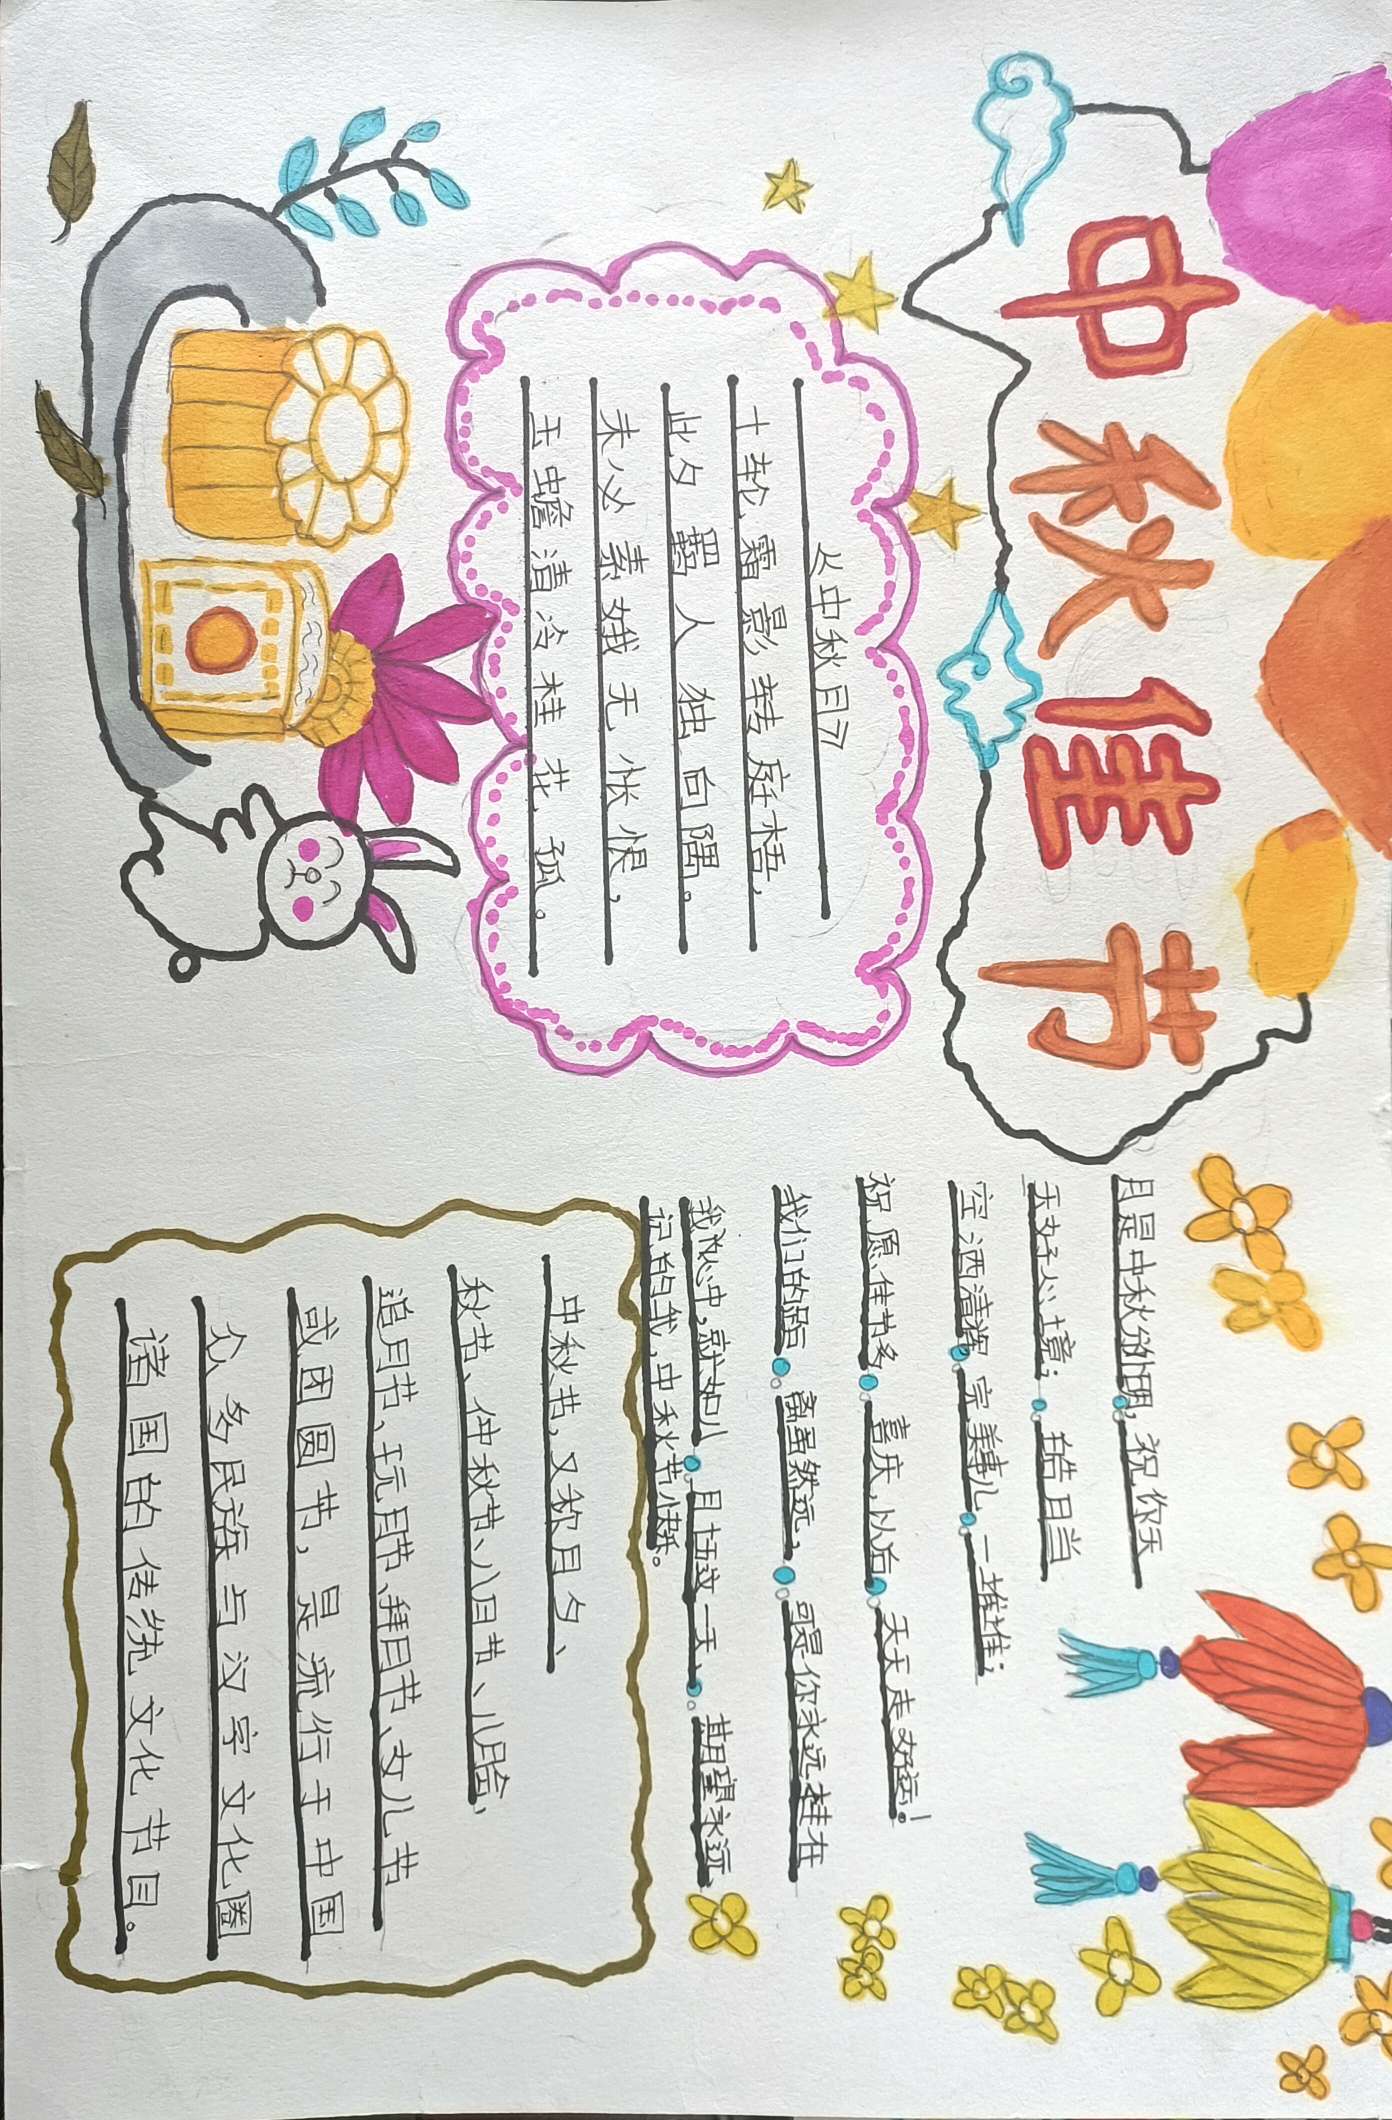 中秋佳节
《中秋月》
十轮霜影转庭梧，
此夕羁人独向隅。
未必素娥无怅恨，
玉蟾清冷桂花孤。
月是中秋分外明，祝你天
天好心境；皓月当
空洒清辉，完美事儿一堆堆；
祝愿佳节多喜庆，以后天天走好运！
我们的距离虽然远，可是你永远挂在
我心中，就如八月十五这一天、期望永远
记的我，中秋节快乐。
中秋节，又称月夕、
秋节、仲秋节、八月节、八月会、
追月节、玩月节、拜月节、女儿节
或团圆节，是流行于中国
众多民族与汉字文化圈
诸国的传统文化节目。